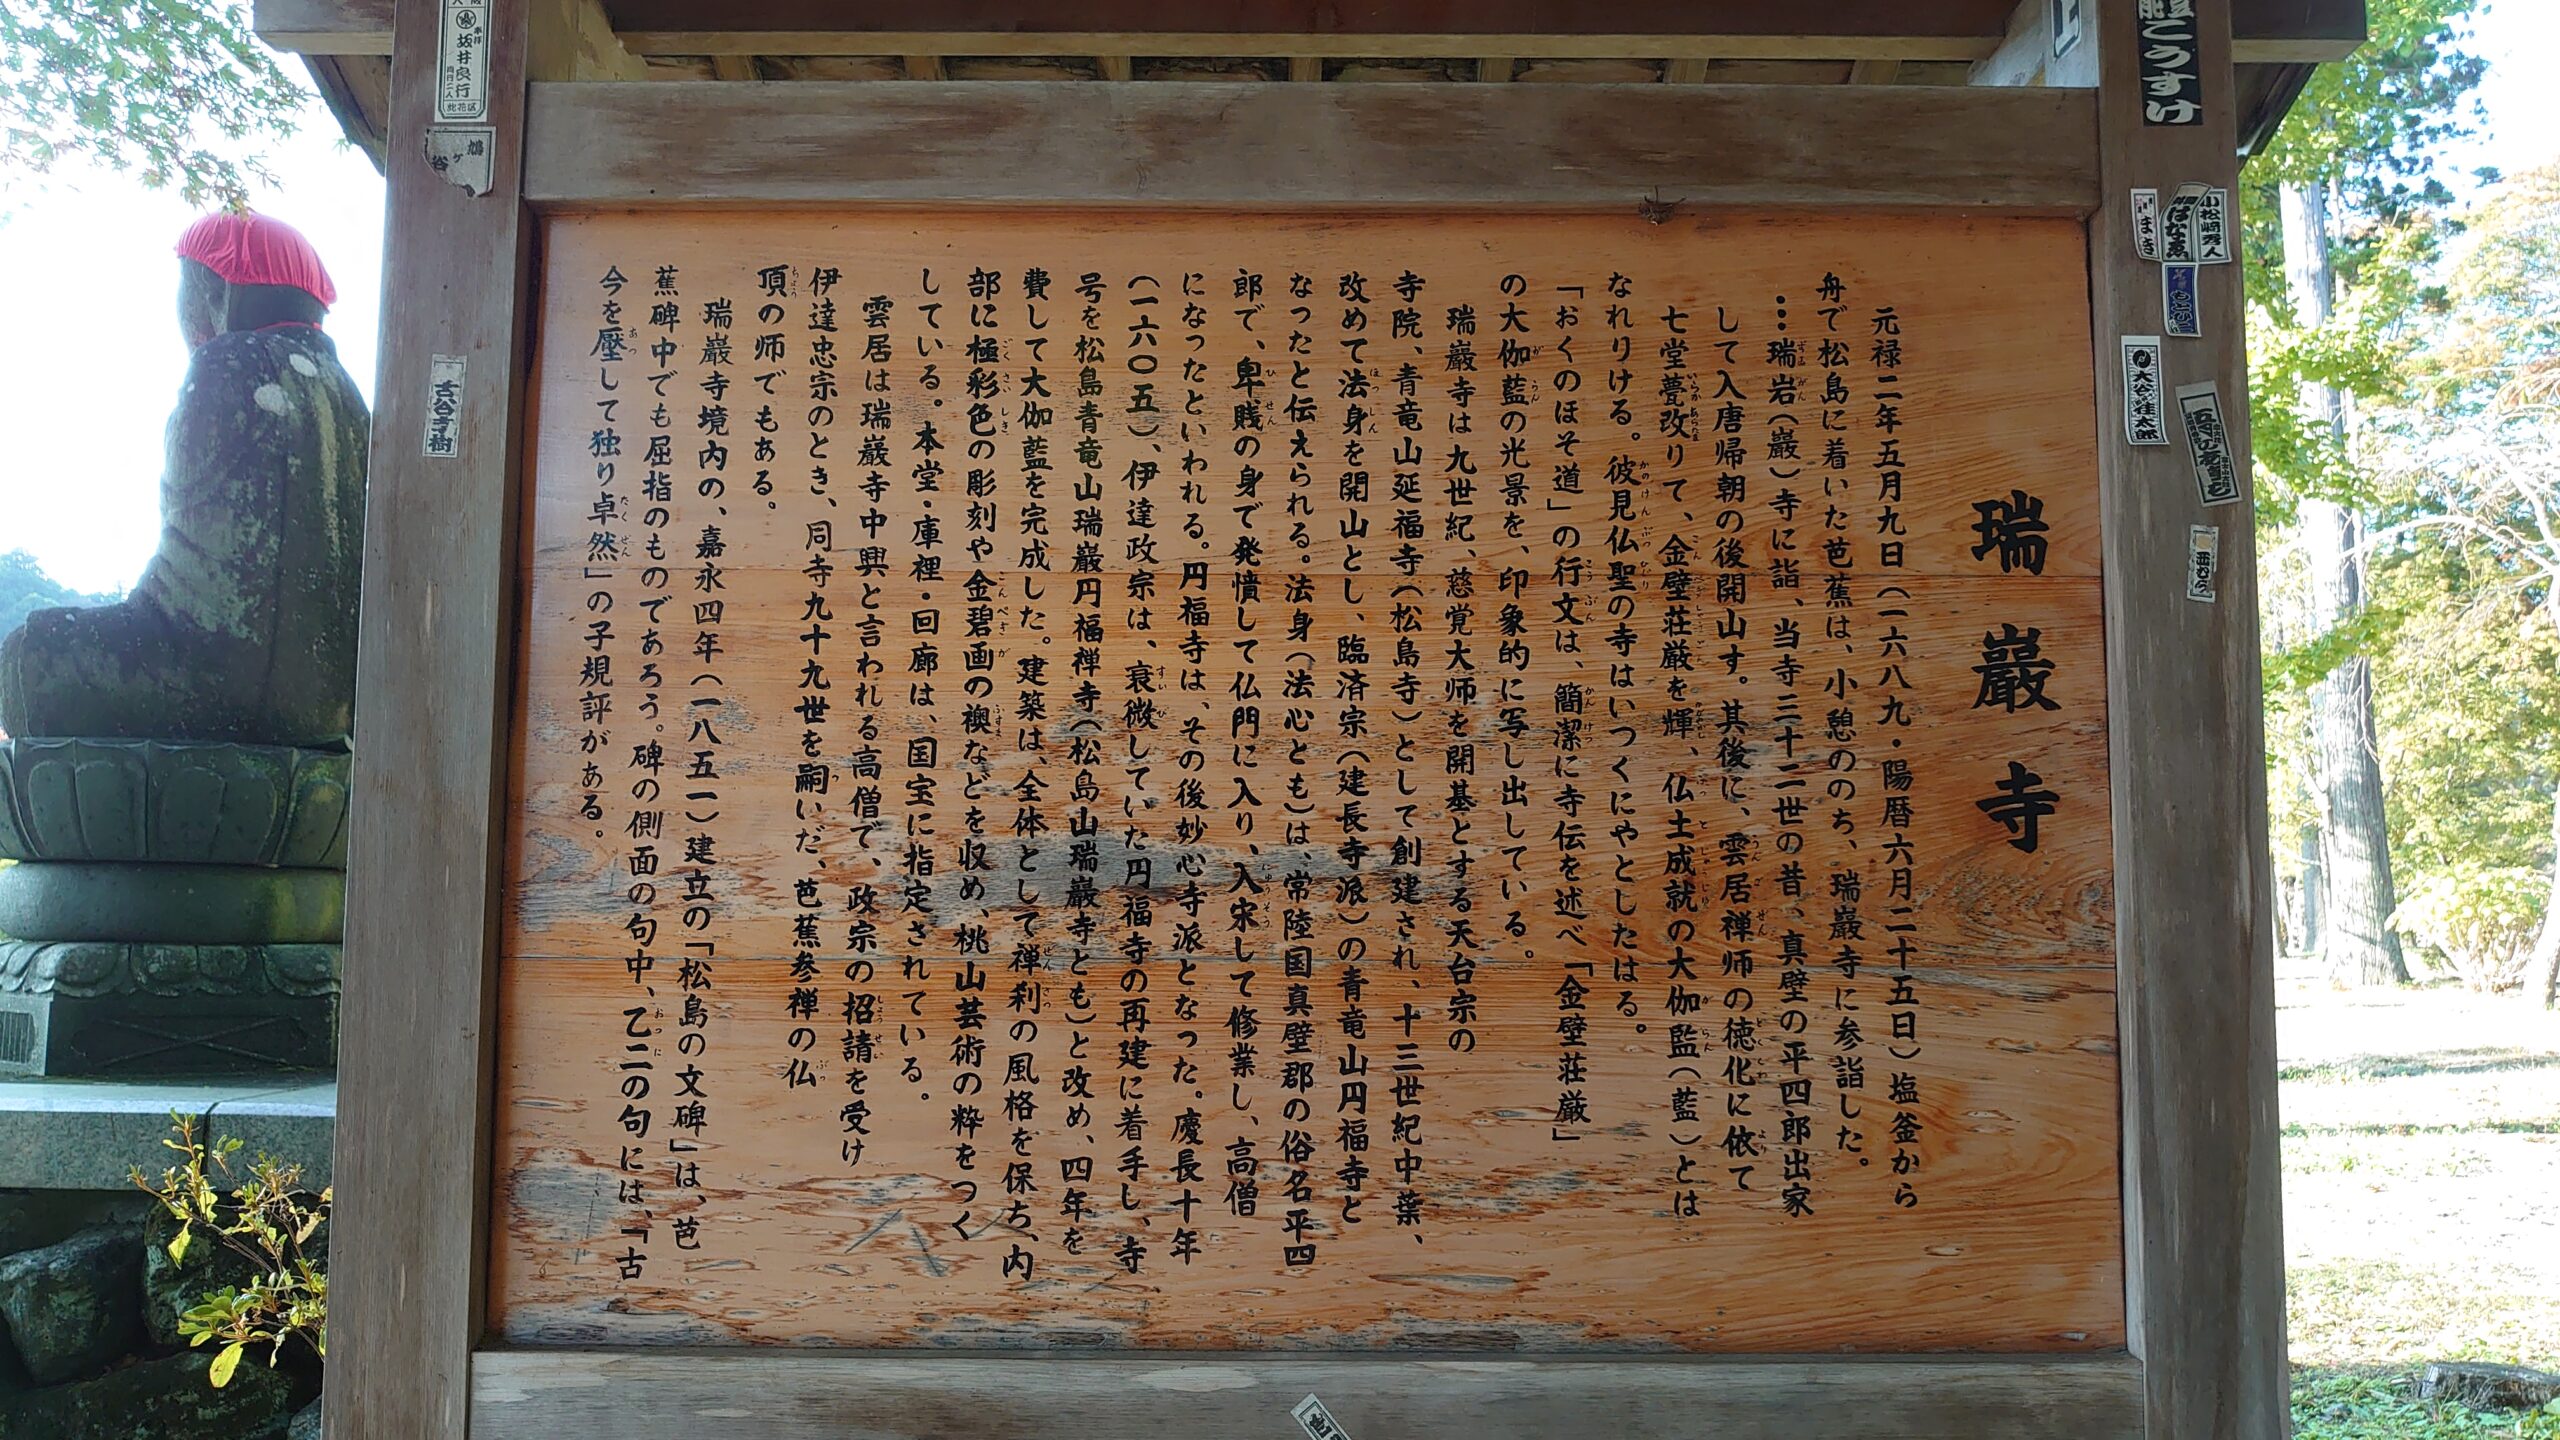 瑞巖寺
元禄二年五月九日（一六八九・陽暦六月二十五日）塩釜から
舟で松島に着いた芭蕉は、小憩ののち、瑞巖寺に参詣した。
…瑞岩（巖）寺に詣、当寺三十二世の昔、真壁の平四郎出家
して入唐帰朝の後開山す。其後に、雲居禅師の徳化に依て
七堂甍改りて、金壁荘厳を輝、仏土成就の大伽監（藍）とは
なれりける。彼見仏聖の寺はいつくにやとしたはる。
「おくのほそ道」の行文は、簡潔に寺伝を述べ「金壁荘厳」
の大伽藍の光景を、印象的に写し出している。
瑞巖寺は九世紀、慈覚大師を開基とする天台宗の
寺院、青竜山延福寺（松島寺）として創建され、十三世紀中葉、
改めて法身を開山とし、臨済宗（建長寺派）の青竜山円福寺と
なったと伝えられる。法身（法心とも）は、常陸国真壁郡の俗名平四
郎で、卑賎の身で発憤して仏門に入り、入宋して修業し、高僧
になったといわれる。円福寺は、その後妙心寺派となった。慶長十年
（一六〇五）、伊達政宗は、衰微していた円福寺の再建に着手し、寺
号を松島青竜山瑞巖円福禅寺（松島山瑞巖寺とも）と改め、四年を
費して大伽藍を完成した。建築は、全体として禅刹の風格を保ち、内
部に極彩色の彫刻や金碧画の襖などを収め、桃山芸術の粋をつく
している。本堂・庫裡・回廊は、国宝に指定されている。
雲居は瑞巖寺中興と言われる高僧で、政宗の招請を受け
伊達忠宗のとき、同寺九十九世を嗣いだ、芭蕉参禅の仏
頂の師でもある。
瑞巖寺境内の、嘉永四年（一八五一）建立の「松島の文碑」は、芭
蕉碑中でも屈指のものであろう。碑の側面の句中、乙二の句には、「古
今を壓して独り卓然」の子規評がある。
坂井良行
鳩ヶ谷
古谷子樹
こうすけ
小松崎秀人
はなゑ
まき
大谷佳太郎
西むら